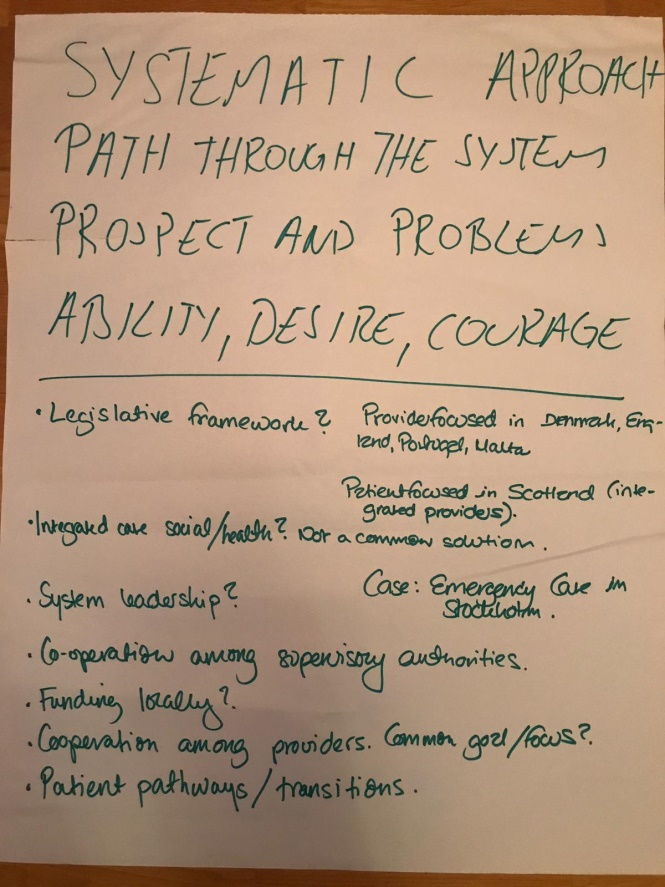 SYSTEMATIC APPROACH
PATH THROUGH THE SYSTEM
PROSPECT AND PROBLEMS
ABILITY, DESIRE, COURAGE
• Legislative framework? Providerfocused in Denmark, Eng-
land, Portugal, Malta
Patientfocused in Scotland (inte-
grated providers).
• Integrated care social/health? Not a common solution.
• System leadership? Case: Emergency Care in
Stockholm.
• Co-operation among supervisory authorities.
• Funding locally?
• Cooperation among providers. Common goal/focus?
• Patient pathways/transitions.